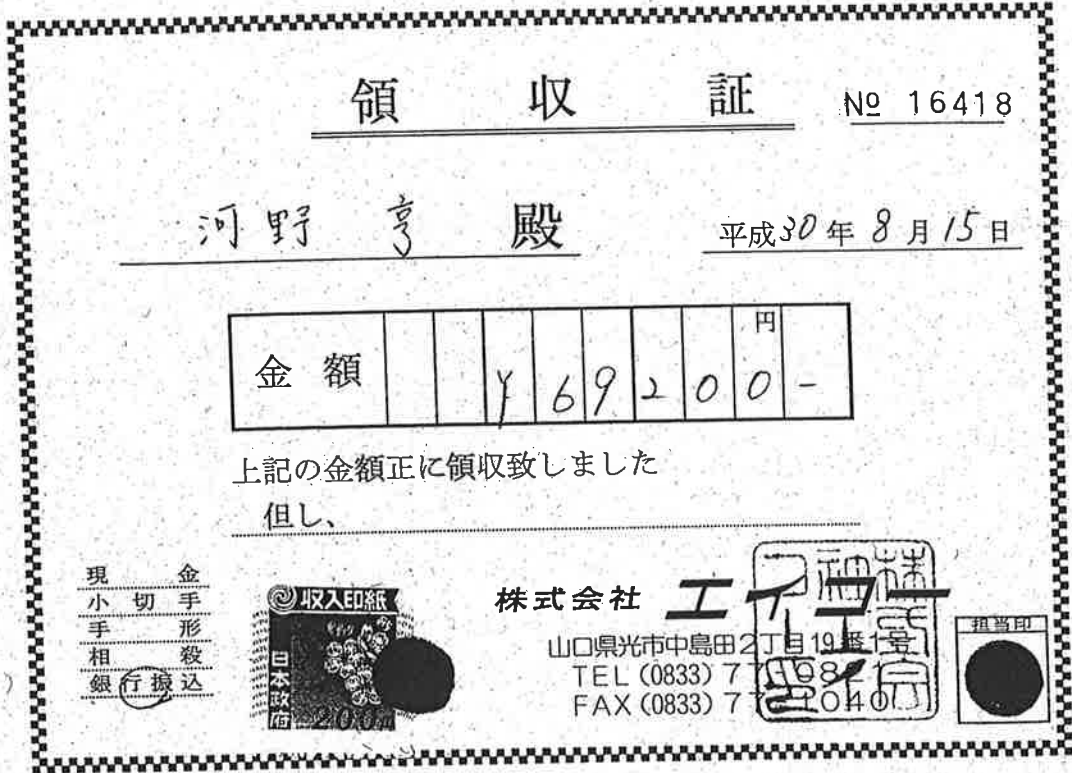 領収証
№ 16418
河野 亨 殿
平成30年8月15日
金額 ¥69200- 円
上記の金額正に領収致しました
但し、
現金
小切手
手形
相殺
銀行振込
収入印紙
日本政府
200円
株式会社 エイコー
山口県光市中島田2丁目19番1号
TEL (0833) 7
FAX (0833) 7
担当印